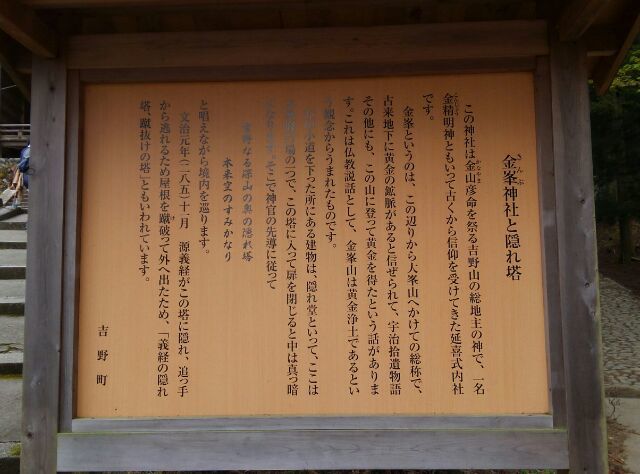 金峯神社と隠れ塔
きんぷ
この神社は金山彦命を祭る吉野山の総地主の神で、一名
かなやま
金精明神ともいって古くから信仰を受けてきた延喜式内社
です。
金峯というのは、この辺りから大峯山へかけての総称で、
古来地下に黄金の鉱脈があると信ぜられて、宇治拾遺物語
その他にも、この山に登って黄金を得たという話がありま
す。これは仏教説話として、金峯山は黄金浄土であるとい
う観念からうまれたものです。
小道を下った所にある建物は、隠れ堂といって、ここは
場の一つで、この塔に入って扉を閉じると中は真っ暗
になります。そこで神官の先導に従って
吉野なる深山の奥の隠れ塔
本来空のすみかなり
と唱えながら境内を巡ります。
文治元年（一一八五）十一月 源義経がこの塔に隠れ、追っ手
から逃れるため屋根を蹴破って外へ出たため、「義経の隠れ
塔、蹴抜けの塔」ともいわれています。
け
吉野町